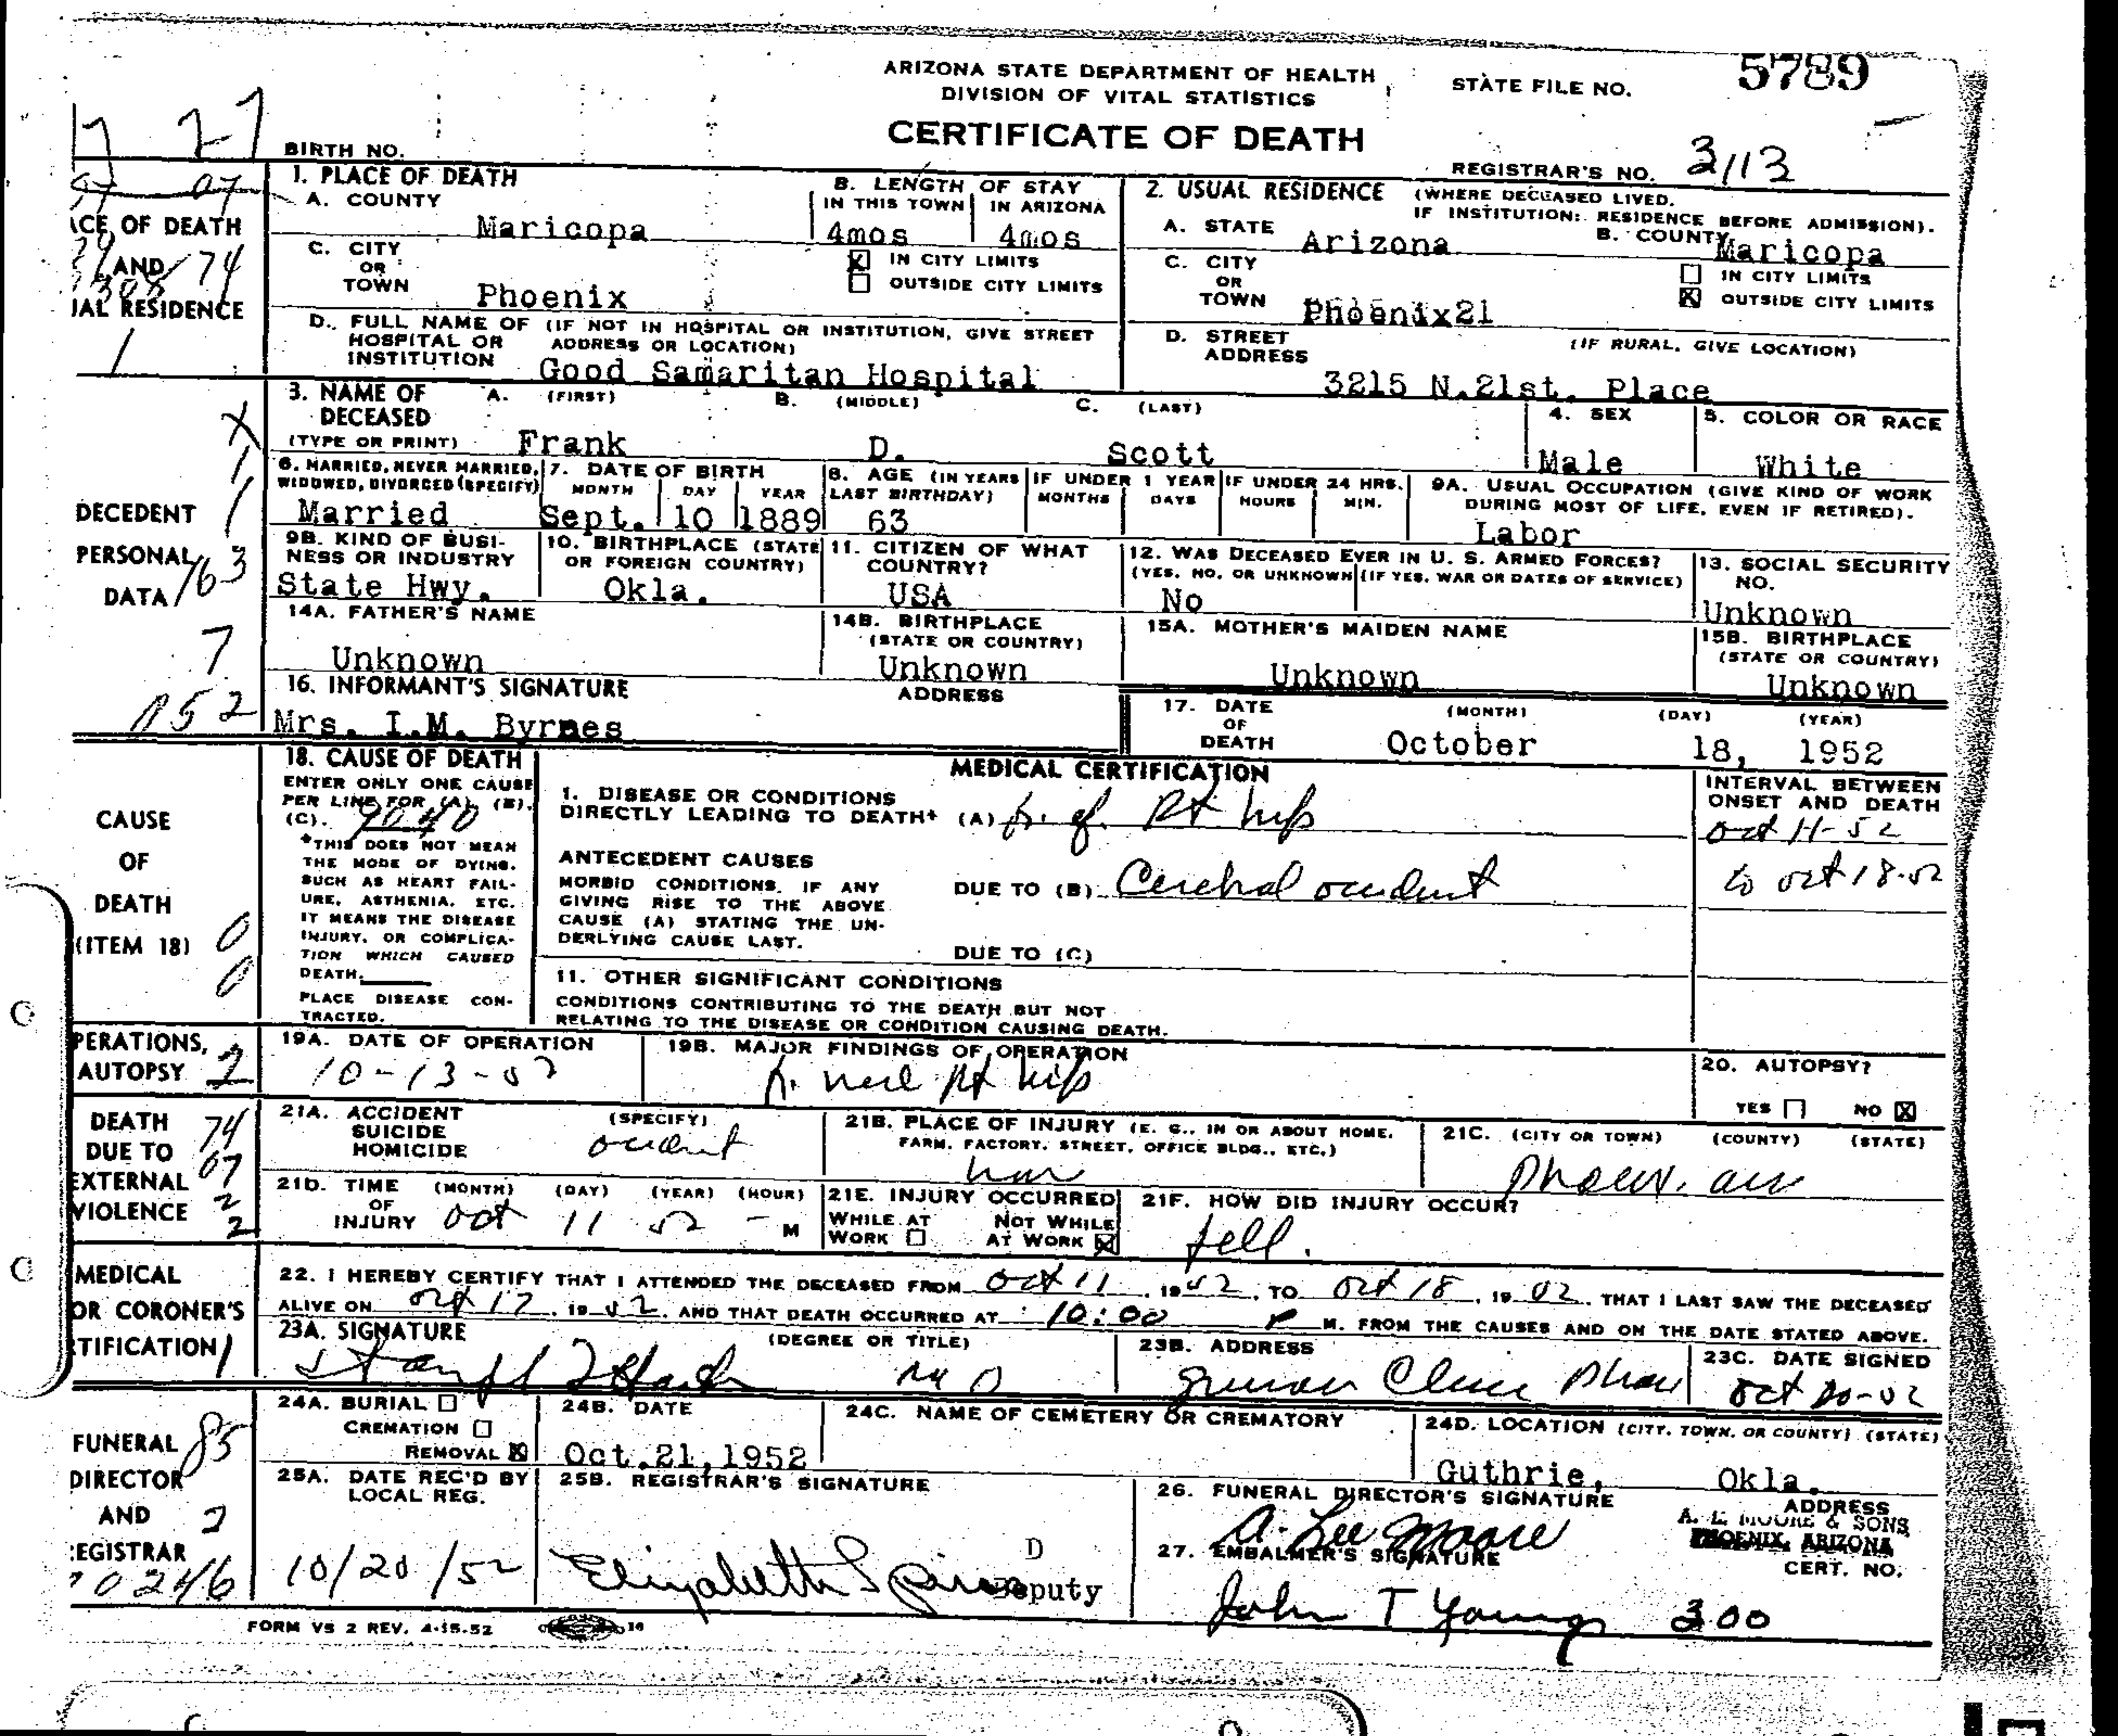 ARIZONA STATE DEPARTMENT OF HEALTH
DIVISION OF VITAL STATISTICS
STATE FILE NO. 5789
CERTIFICATE OF DEATH
BIRTH NO.
REGISTRAR'S NO. 3113
1. PLACE OF DEATH
A. COUNTY Maricopa
B. LENGTH OF STAY
IN THIS TOWN 4mos IN ARIZONA 4mos
2. USUAL RESIDENCE (WHERE DECEASED LIVED.
IF INSTITUTION: RESIDENCE BEFORE ADMISSION).
A. STATE Arizona B. COUNTY Maricopa
C. CITY OR TOWN Phoenix
IN CITY LIMITS
OUTSIDE CITY LIMITS
C. CITY OR TOWN Phoenix21
IN CITY LIMITS
OUTSIDE CITY LIMITS
D. FULL NAME OF HOSPITAL OR INSTITUTION (IF NOT IN HOSPITAL OR INSTITUTION, GIVE STREET ADDRESS OR LOCATION)
Good Samaritan Hospital
D. STREET ADDRESS (IF RURAL, GIVE LOCATION)
3215 N.21st. Place
3. NAME OF DECEASED (TYPE OR PRINT)
A. (FIRST) Frank B. (MIDDLE) D. C. (LAST) Scott
4. SEX Male
5. COLOR OR RACE White
6. MARRIED, NEVER MARRIED, WIDOWED, DIVORCED (SPECIFY) Married
7. DATE OF BIRTH MONTH Sept. DAY 10 YEAR 1889
8. AGE (IN YEARS LAST BIRTHDAY) 63
IF UNDER 1 YEAR MONTHS DAYS
IF UNDER 24 HRS. HOURS MIN.
9A. USUAL OCCUPATION (GIVE KIND OF WORK DURING MOST OF LIFE, EVEN IF RETIRED). Labor
9B. KIND OF BUSINESS OR INDUSTRY State Hwy.
10. BIRTHPLACE (STATE OR FOREIGN COUNTRY) Okla.
11. CITIZEN OF WHAT COUNTRY? USA
12. WAS DECEASED EVER IN U. S. ARMED FORCES?
(YES, NO, OR UNKNOWN) (IF YES, WAR OR DATES OF SERVICE) No
13. SOCIAL SECURITY NO. Unknown
14A. FATHER'S NAME Unknown
14B. BIRTHPLACE (STATE OR COUNTRY) Unknown
15A. MOTHER'S MAIDEN NAME Unknown
15B. BIRTHPLACE (STATE OR COUNTRY) Unknown
16. INFORMANT'S SIGNATURE ADDRESS
Mrs. I.M. Byrnes
17. DATE OF DEATH (MONTH) October (DAY) 18, (YEAR) 1952
18. CAUSE OF DEATH
ENTER ONLY ONE CAUSE PER LINE FOR (A), (B), (C). 9040
*THIS DOES NOT MEAN THE MODE OF DYING, SUCH AS HEART FAILURE, ASTHENIA, ETC. IT MEANS THE DISEASE INJURY, OR COMPLICATION WHICH CAUSED DEATH.
PLACE DISEASE CONTRACTED.
MEDICAL CERTIFICATION
1. DISEASE OR CONDITIONS DIRECTLY LEADING TO DEATH* (A) fr. of. Rt hip
ANTECEDENT CAUSES
MORBID CONDITIONS, IF ANY GIVING RISE TO THE ABOVE CAUSE (A) STATING THE UNDERLYING CAUSE LAST.
DUE TO (B) Cerebral accident
DUE TO (C)
INTERVAL BETWEEN ONSET AND DEATH
Oct 11-52
to oct 18-52
11. OTHER SIGNIFICANT CONDITIONS
CONDITIONS CONTRIBUTING TO THE DEATH BUT NOT RELATING TO THE DISEASE OR CONDITION CAUSING DEATH.
19A. DATE OF OPERATION 10-13-52
19B. MAJOR FINDINGS OF OPERATION
Rt hip
20. AUTOPSY?
YES NO
21A. ACCIDENT SUICIDE HOMICIDE (SPECIFY) accident
21B. PLACE OF INJURY (E. G., IN OR ABOUT HOME, FARM, FACTORY, STREET, OFFICE BLDG., ETC.)
21C. (CITY OR TOWN) (COUNTY) (STATE)
21D. TIME OF INJURY (MONTH) Oct (DAY) 11 (YEAR) 52 (HOUR) - M
21E. INJURY OCCURRED
WHILE AT WORK NOT WHILE AT WORK
21F. HOW DID INJURY OCCUR?
fell.
22. I HEREBY CERTIFY THAT I ATTENDED THE DECEASED FROM Oct 11, 1952, TO Oct 18, 1952, THAT I LAST SAW THE DECEASED
ALIVE ON Oct 17, 1952, AND THAT DEATH OCCURRED AT 10:00 P M. FROM THE CAUSES AND ON THE DATE STATED ABOVE.
23A. SIGNATURE (DEGREE OR TITLE)
M D
23B. ADDRESS
23C. DATE SIGNED
Oct 20-52
24A. BURIAL
CREMATION
REMOVAL
24B. DATE Oct.21,1952
24C. NAME OF CEMETERY OR CREMATORY
24D. LOCATION (CITY, TOWN, OR COUNTY) (STATE)
Guthrie, Okla.
25A. DATE REC'D BY LOCAL REG.
10/20/52
25B. REGISTRAR'S SIGNATURE
Elizabeth
D
Deputy
26. FUNERAL DIRECTOR'S SIGNATURE ADDRESS
A. Lee Moore
A. L. MOORE & SONS
PHOENIX, ARIZONA
27. EMBALMER'S SIGNATURE CERT. NO.
John T Young 300
FORM VS 2 REV. 4-15-52
ACE OF DEATH
AND 74
IAL RESIDENCE
DECEDENT
PERSONAL
DATA 163
7
CAUSE
OF
DEATH
(ITEM 18)
0
0
PERATIONS,
AUTOPSY 2
DEATH 74
DUE TO 07
EXTERNAL 2
VIOLENCE 2
MEDICAL
OR CORONER'S
TIFICATION 1
FUNERAL 85
DIRECTOR
AND 2
EGISTRAR